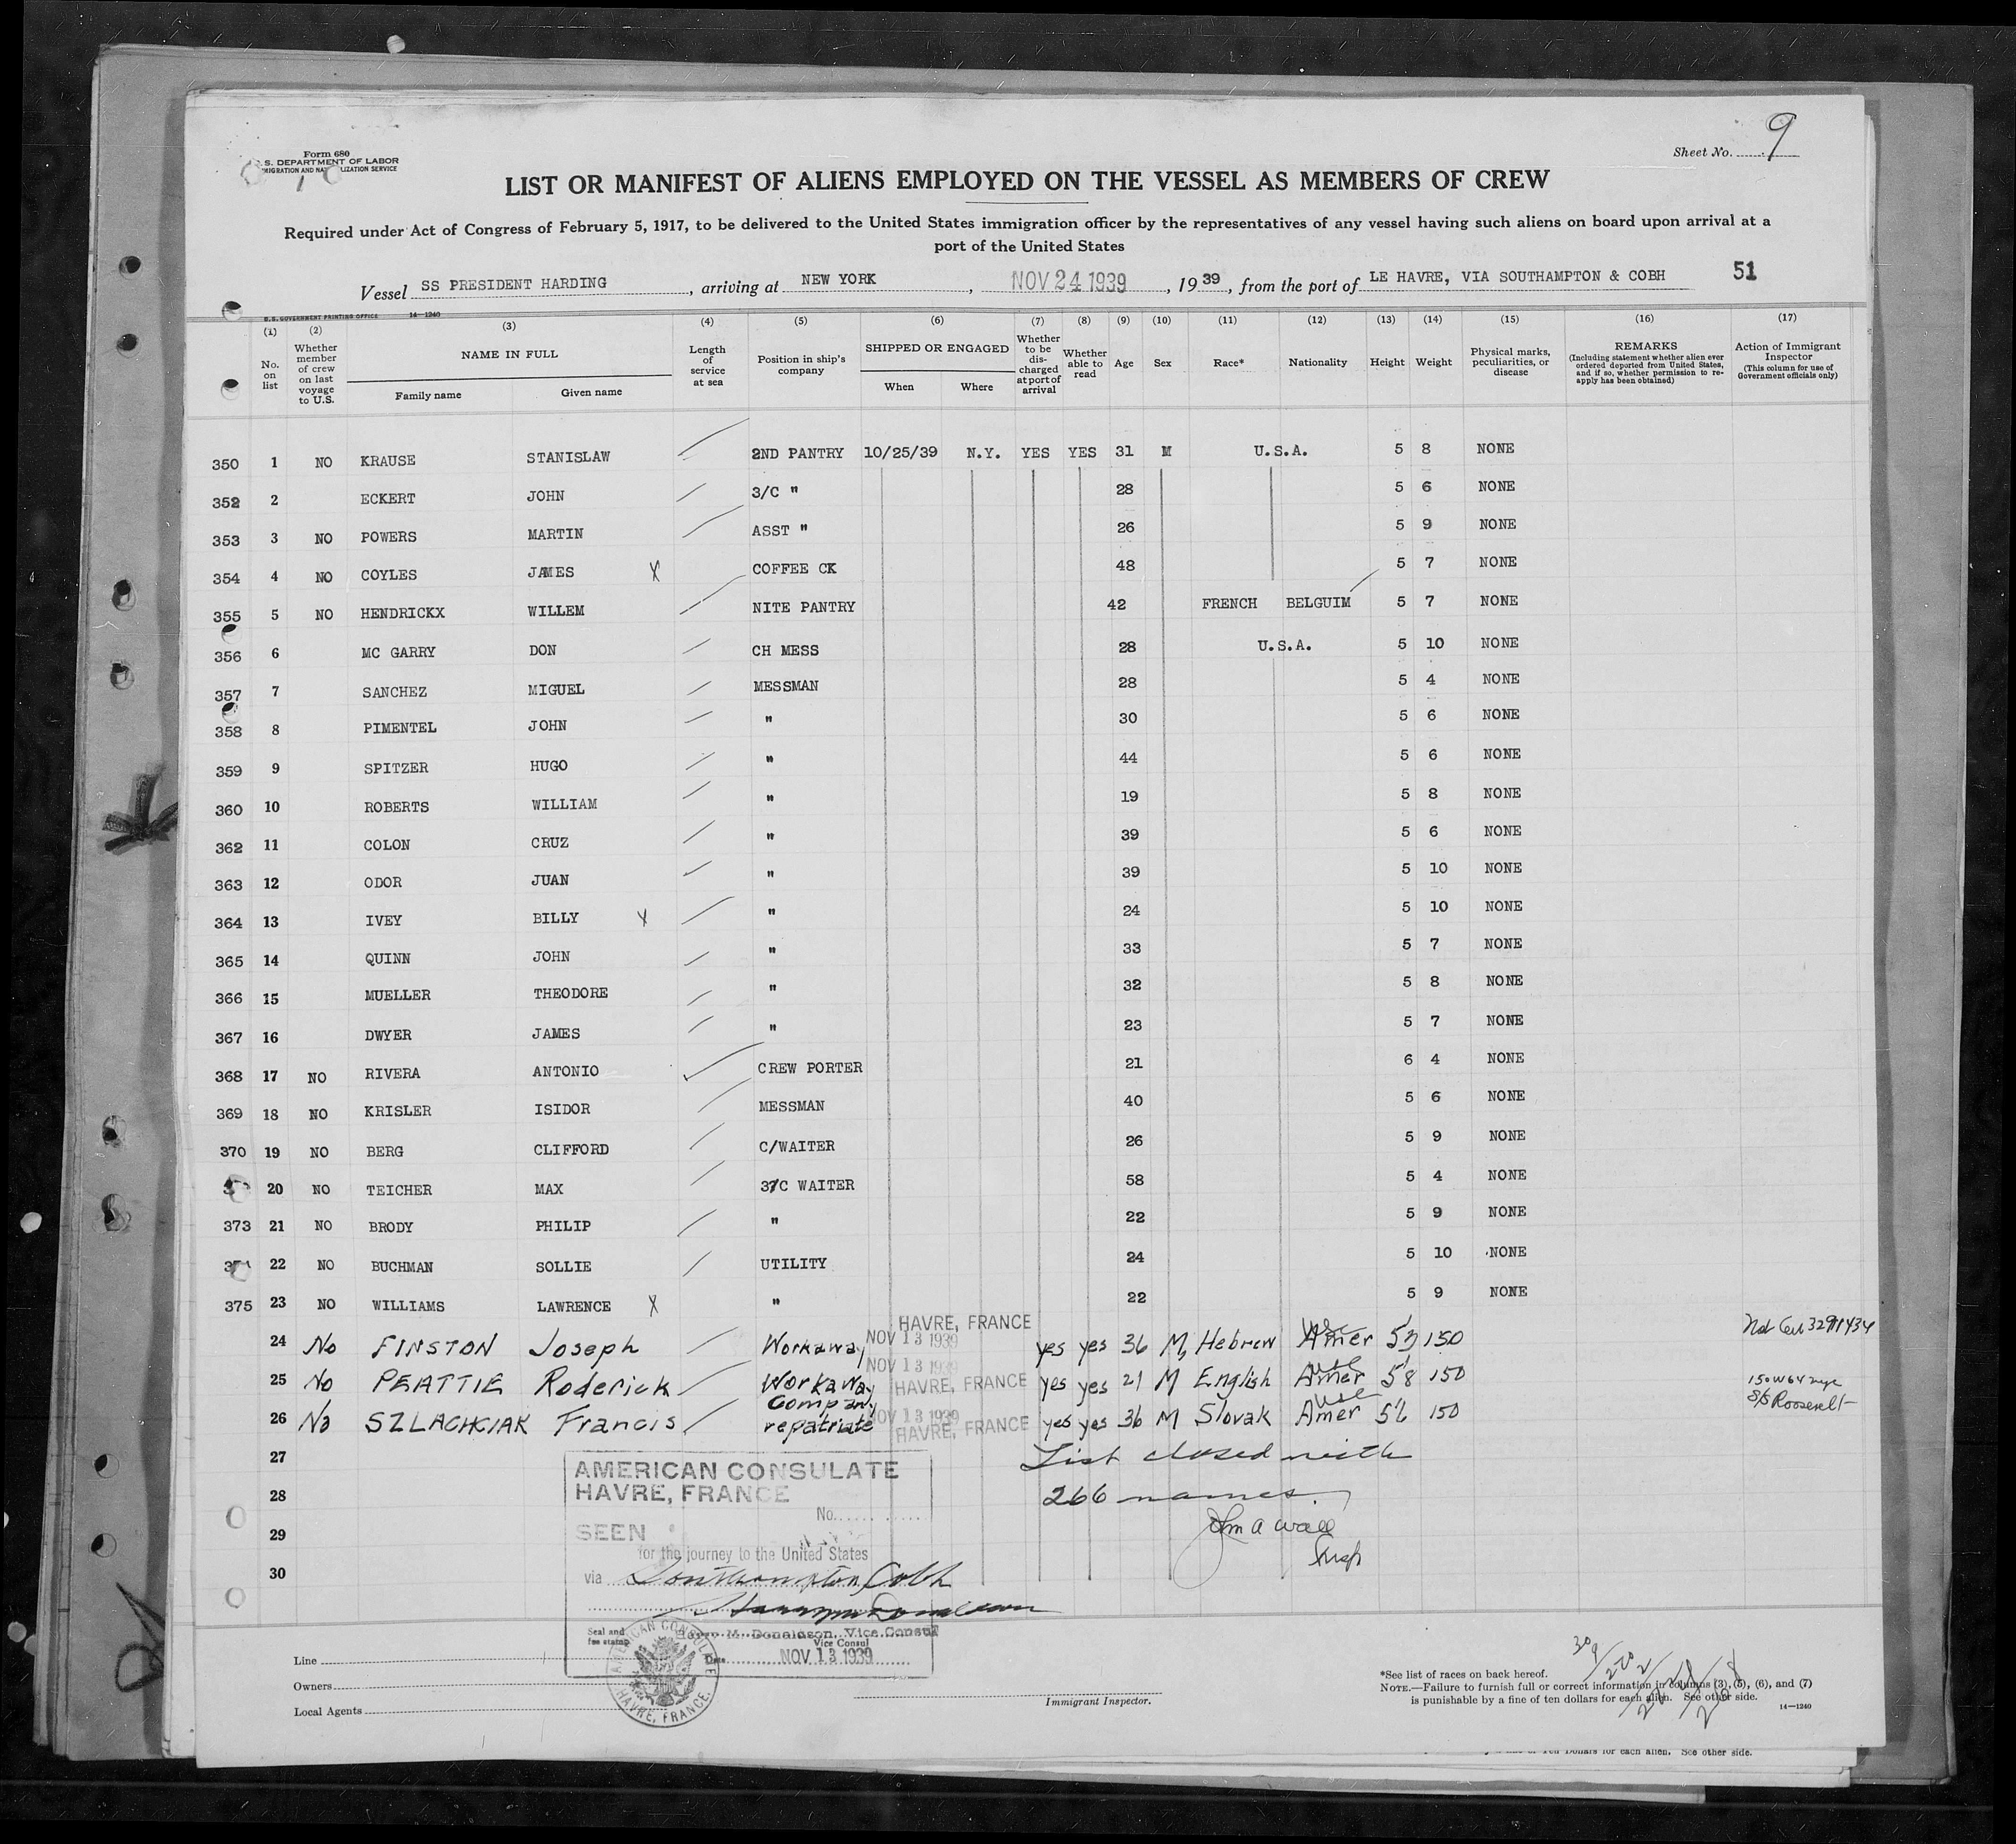 Form 680
S. DEPARTMENT OF LABOR
MIGRATION AND NATURALIZATION SERVICE
Sheet No. 9
LIST OR MANIFEST OF ALIENS EMPLOYED ON THE VESSEL AS MEMBERS OF CREW
Required under Act of Congress of February 5, 1917, to be delivered to the United States immigration officer by the representatives of any vessel having such aliens on board upon arrival at a
port of the United States
Vessel SS PRESIDENT HARDING, arriving at NEW YORK, NOV 24 1939, 1939, from the port of LE HAVRE, VIA SOUTHAMPTON & COBH 51
U.S. GOVERNMENT PRINTING OFFICE 14—1240
(1) (2) (3) (4) (5) (6) (7) (8) (9) (10) (11) (12) (13) (14) (15) (16) (17)
No. on list
Whether member of crew on last voyage to U.S.
NAME IN FULL
Family name Given name
Length of service at sea
Position in ship's company
SHIPPED OR ENGAGED
When Where
Whether to be discharged at port of arrival
Whether able to read
Age
Sex
Race*
Nationality
Height
Weight
Physical marks, peculiarities, or disease
REMARKS
(Including statement whether alien ever ordered deported from United States, and if so, whether permission to re-apply has been obtained)
Action of Immigrant Inspector
(This column for use of Government officials only)
350 1 NO KRAUSE STANISLAW 2ND PANTRY 10/25/39 N.Y. YES YES 31 M U.S.A. 5 8 NONE
352 2 ECKERT JOHN 3/C " 28 5 6 NONE
353 3 NO POWERS MARTIN ASST " 26 5 9 NONE
354 4 NO COYLES JAMES X COFFEE CK 48 5 7 NONE
355 5 NO HENDRICKX WILLEM NITE PANTRY 42 FRENCH BELGUIM 5 7 NONE
356 6 MC GARRY DON CH MESS 28 U.S.A. 5 10 NONE
357 7 SANCHEZ MIGUEL MESSMAN 28 5 4 NONE
358 8 PIMENTEL JOHN " 30 5 6 NONE
359 9 SPITZER HUGO " 44 5 6 NONE
360 10 ROBERTS WILLIAM " 19 5 8 NONE
362 11 COLON CRUZ " 39 5 6 NONE
363 12 ODOR JUAN " 39 5 10 NONE
364 13 IVEY BILLY X " 24 5 10 NONE
365 14 QUINN JOHN " 33 5 7 NONE
366 15 MUELLER THEODORE " 32 5 8 NONE
367 16 DWYER JAMES " 23 5 7 NONE
368 17 NO RIVERA ANTONIO CREW PORTER 21 6 4 NONE
369 18 NO KRISLER ISIDOR MESSMAN 40 5 6 NONE
370 19 NO BERG CLIFFORD C/WAITER 26 5 9 NONE
20 NO TEICHER MAX 3/C WAITER 58 5 4 NONE
373 21 NO BRODY PHILIP " 22 5 9 NONE
22 NO BUCHMAN SOLLIE UTILITY 24 5 10 NONE
375 23 NO WILLIAMS LAWRENCE X " 22 5 9 NONE
24 No FINSTON Joseph Workaway NOV 13 1939 HAVRE, FRANCE yes yes 36 M Hebrew Amer 5 3 150
25 No PEATTIE Roderick Workaway NOV 13 1939 HAVRE, FRANCE yes yes 21 M English Amer 5'8 150
S/S Roosevelt
26 No SZLACHCIAK Francis Company repatriate NOV 13 1939 HAVRE, FRANCE yes yes 36 M Slovak Amer 5'6 150
27 List closed with
28 266 names.
29 John A Wall
30
AMERICAN CONSULATE
HAVRE, FRANCE
No.
SEEN
for the journey to the United States
via Southampton, Cobh
Seal and fee stamp
Harry M. Donaldson, Vice Consul
Vice Consul
Date NOV 13 1939
AMERICAN CONSULATE HAVRE, FRANCE.
Line
Owners
Local Agents
Immigrant Inspector.
*See list of races on back hereof.
NOTE.—Failure to furnish full or correct information in columns (3), (5), (6), and (7)
is punishable by a fine of ten dollars for each alien. See other side.
14—1240
Ten Dollars for each alien. See other side.